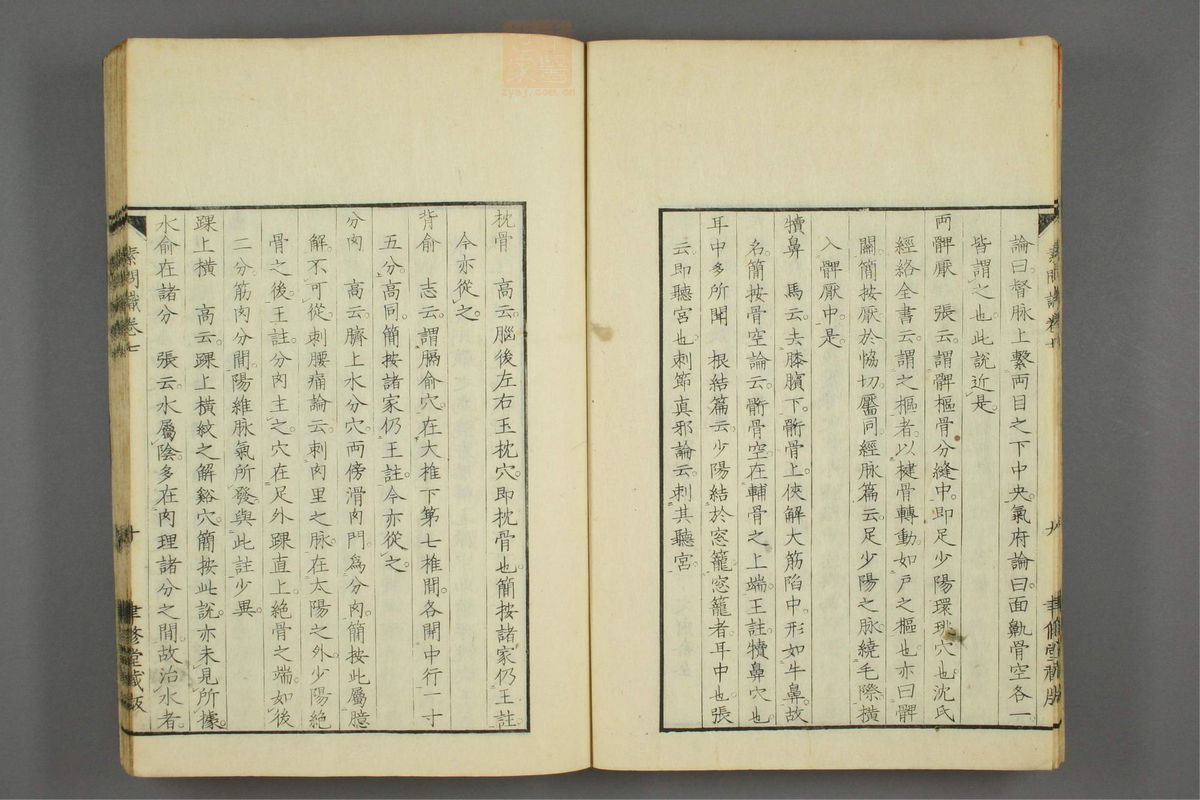 論曰督脉上繫両目之下中央氣府論曰面鼽骨空各一
皆謂之也此説近是
両髀厭　張云謂髀樞骨分縫中即足少陽環珧穴也沈氏
經絡全書云謂之樞者以楗骨轉動如戸之樞也亦曰髀
關簡按厭於恊切靨同經脉篇云足少陽之脉繞毛際横
入髀厭中是
犢鼻　馬云去膝臏下䯒骨上俠解大筋陷中形如牛鼻故
名簡按骨空論云䯒骨空在輔骨之上端王註犢鼻穴也
耳中多所聞　根結篇云少陽結於窓籠窓籠者耳中也張
云即聽宮也刺節真邪論云刺其聽宮
素問識卷七
九
聿修堂藏版
枕骨　高云腦後左右玉枕穴即枕骨也簡按諸家仍王註
今亦從之
背俞　志云謂膈俞穴在大椎下第七椎間各開中行一寸
五分高同簡按諸家仍王註今亦從之
分肉　高云臍上水分穴両傍滑肉門爲分肉簡按此屬臆
解不可從刺腰痛論云刺肉里之脉在太陽之外少陽絶
骨之後王註分肉主之穴在足外踝直上絶骨之端如後
二分筋肉分間陽維脉氣所發與此註少異
踝上横　高云踝上横紋之解谿穴簡按此説亦未見所據
水俞在諸分　張云水屬陰多在肉理諸分之間故治水者
素問識卷七
十
聿修堂藏版